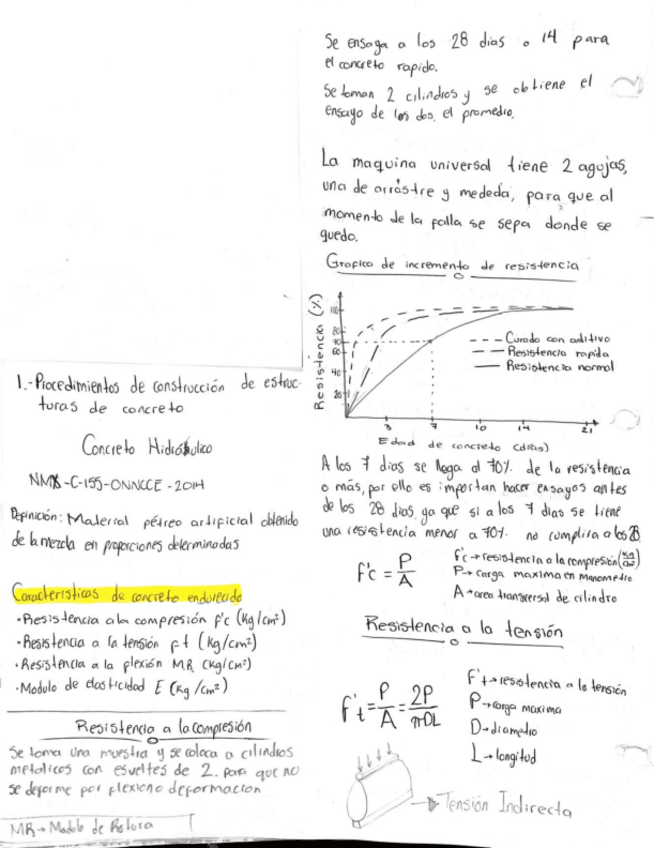 1.-Procedimientos de construcción de estruc-
turas de concreto
Concreto Hidráulico
NMX-C-155-ONNCCE-2014
Definición: Material pétreo artificial obtenido
de la mezcla en proporciones determinadas
Caracteristicas de concreto endurecido
•Resistencia a la compresión f'c (Kg/cm²)
•Resistencia a la tensión ft (Kg/cm²)
•Resistencia a la flexión MR (Kg/cm²)
•Modulo de elasticidad E (Kg/cm²)
Resistencia a la compresión
Se toma una muestra y se coloca a cilindros
metalicos con esveltes de 2. Para que no
se deforme por flexion o deformacion
MR→Modulo de Rotura
Se ensaya a los 28 dias o 14 para
el concreto rapido.
Se toman 2 cilindros y se obtiene el
ensayo de los dos, el promedio.
La maquina universal tiene 2 agujas,
una de arrastre y mededa, para que al
momento de la falla se sepa donde se
quedo.
Grafico de incremento de resistencia
Resistencia (%)
100
80
70
60
40
20
3 7 10 14 21
Edad de concreto (días)
--- Curado con aditivo
— — Resistencia rapida
— Resistencia normal
A los 7 dias se llega al 70% de la resistencia
o más, por ello es importan hacer ensayos antes
de los 28 dias, ya que si a los 7 dias se tiene
una resistencia menor a 70% no cumplira a los 28
f'c = P/A
f'c→resistencia a la compresión (kg/cm²)
P→carga maxima en Manometro
A→area transversal de cilindro
Resistencia a la tensión
f't = P/A = 2P/πDL
f't→resistencia a la tensión
P→carga maxima
D→diametro
L→longitud
Tensión Indirecta